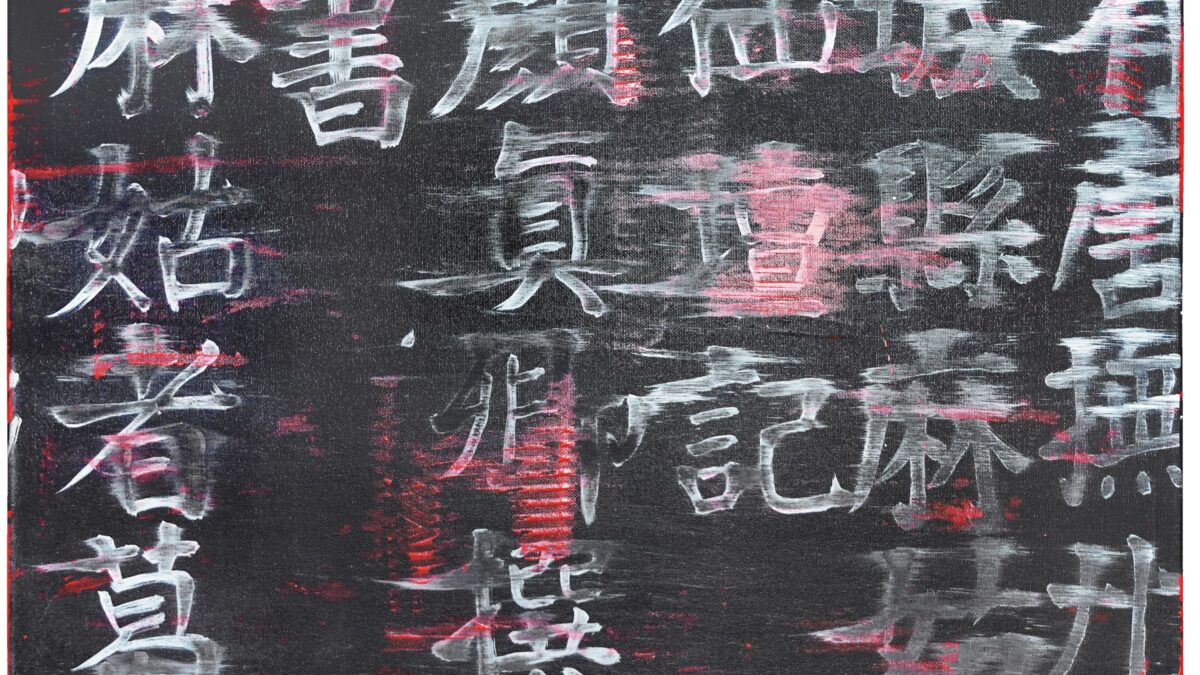 有唐撫州
城縣麻姑
仙壇記
顏真卿撰
書
麻姑者葛